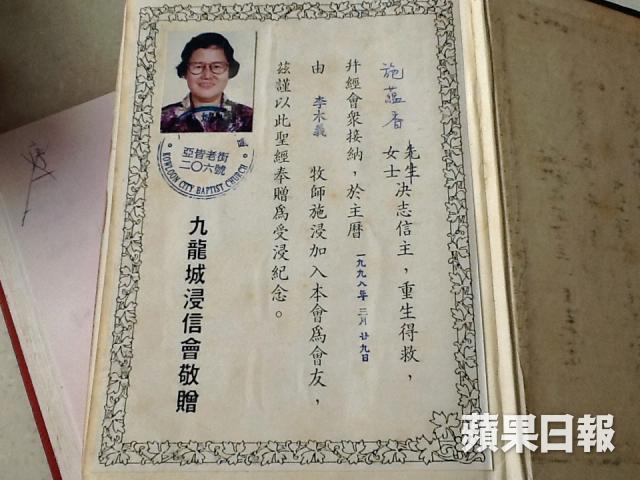 施蘊香 先生女士決志信主，重生得救，
幷經會衆接納，於主曆一九九八年三月廿九日
由 李木義 牧師施浸加入本會爲會友，
茲謹以此聖經奉贈爲受浸紀念。
九龍城浸信會敬贈
亞皆老街
二〇六號
KOWLOON CITY BAPTIST CHURCH
蘋果日報